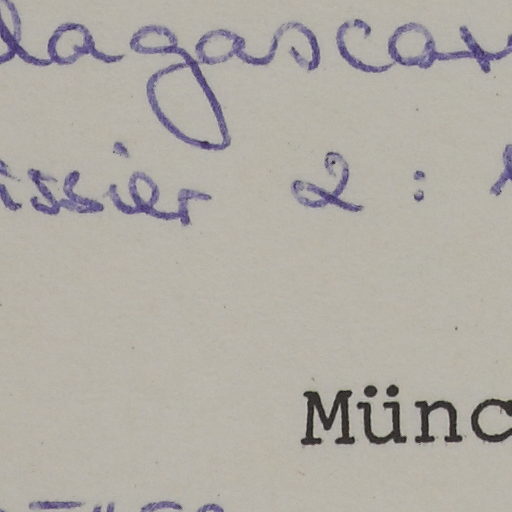 lagascar
issier 2 :
Münc